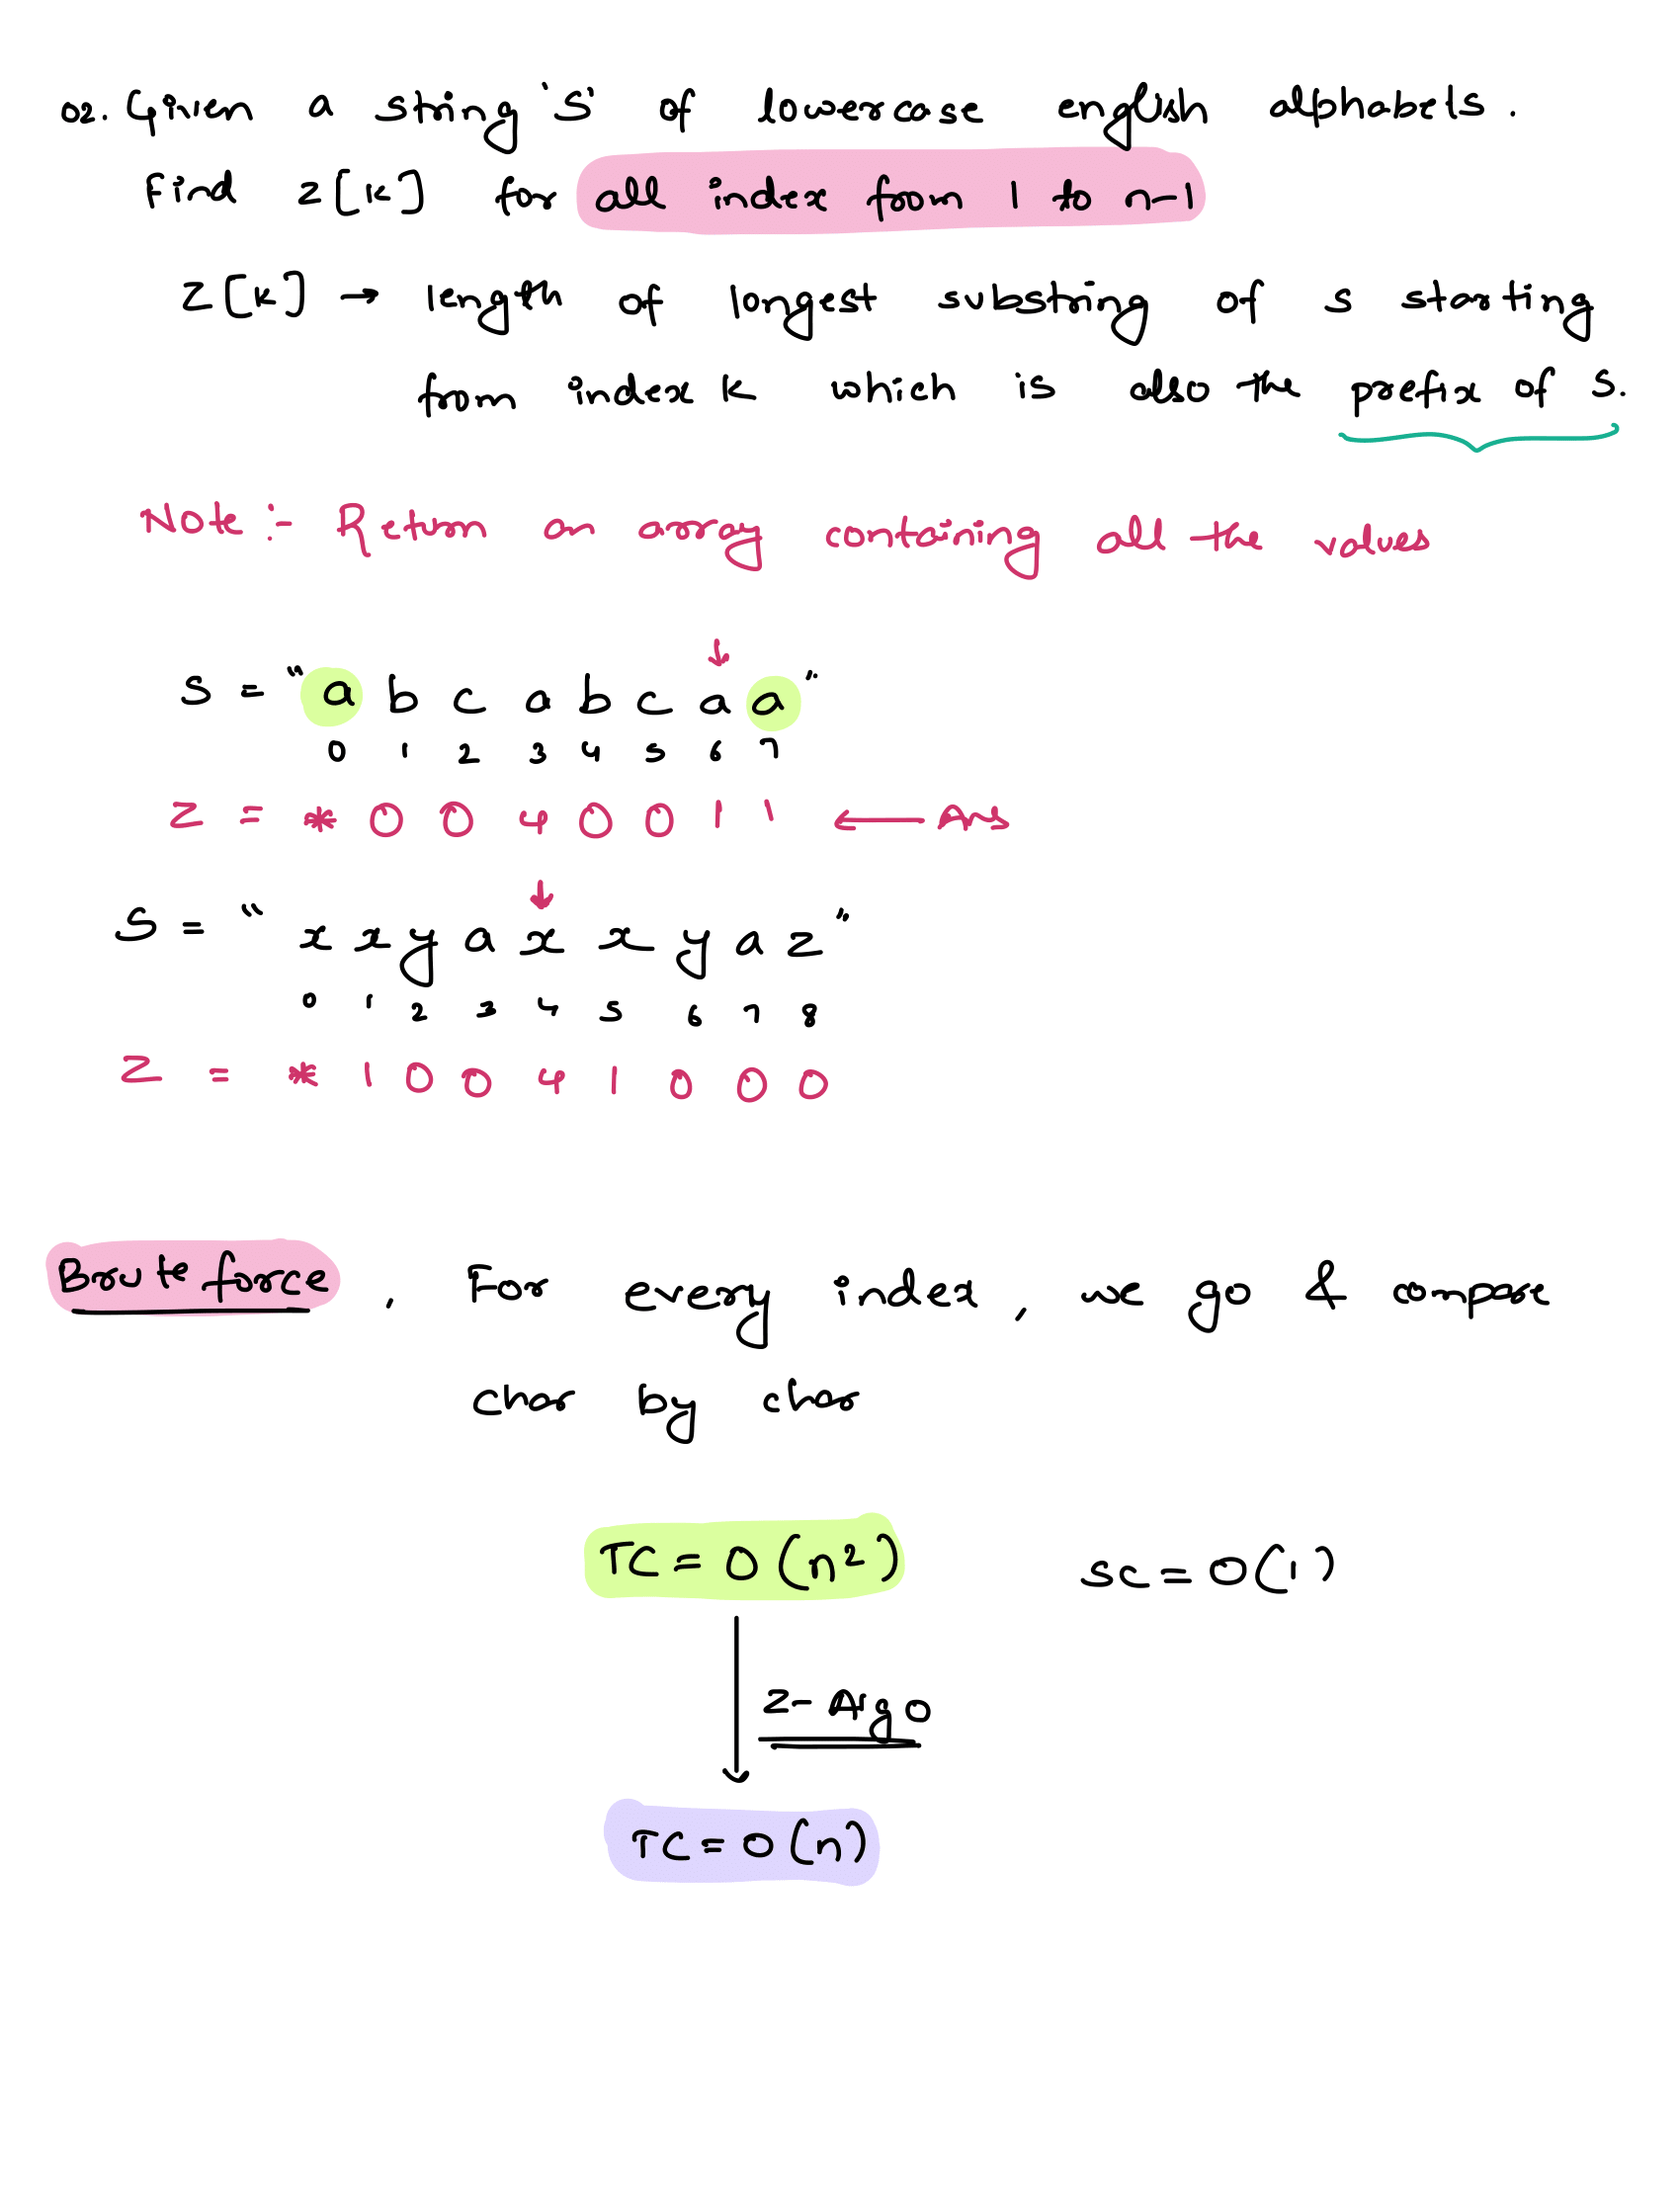 Q2. Given a string 'S' of lowercase english alphabets.
Find Z[K] for all index from 1 to n-1
Z[K] → length of longest substring of s starting
from index K which is also the prefix of s.
Note :- Return an array containing all the values
↓
S = "a b c a b c a a"
0 1 2 3 4 5 6 7
Z = * 0 0 4 0 0 1 1 ← Ans
↓
S = "x x y a x x y a z"
0 1 2 3 4 5 6 7 8
Z = * 1 0 0 4 1 0 0 0
Brute force , For every index, we go & compare
char by char
TC = O(n²) SC = O(1)
Z- Argo
TC = O(n)